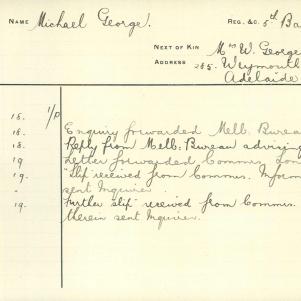 NAME Michael George. REG. &C. 5th Ba
NEXT OF KIN Mrs W. George
ADDRESS 285. Weymouth
Adelaide
18. 1/10
18. Enquiry forwarded Melb. Burea
18. Reply from Melb: Bureau advising
19 Letter forwarded Commis. Lon
19. "Slip" received from Commis. Inform
" sent Inquirer.
19. Further slip" received from Commis.
therein sent Inquirer.